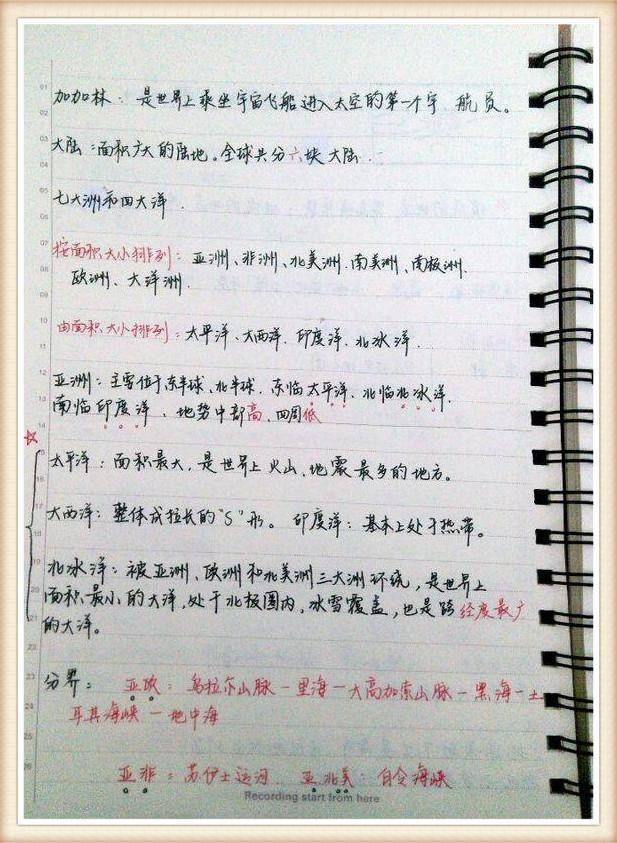 加加林：是世界上乘坐宇宙飞船进入太空的第一个宇 航员。
大陆：面积广大的陆地。全球共分六块大陆.
七大洲和四大洋.
按面积大小排列：亚洲、非洲、北美洲.南美洲、南极洲.
欧洲、大洋洲
由面积大小排列：太平洋、大西洋.印度洋.北冰洋.
亚洲：主要位于东半球、北半球.东临太平洋、北临北冰洋.
南临印度洋、地势中部高、四周低
☆
太平洋：面积最大，是世界上火山、地震最多的地方。
大西洋：整体成拉长的"S"形。 印度洋：基本上处于热带。
北冰洋：被亚洲、欧洲和北美洲三大洲环绕，是世界上
面积最小的大洋，处于北极圈内，冰雪覆盖，也是跨经度最广
的大洋。
分界： 亚欧：乌拉尔山脉－里海－大高加索山脉－黑海－土
耳其海峡－地中海
亚非：苏伊士运河 亚北美 白令海峡
Recording start from here